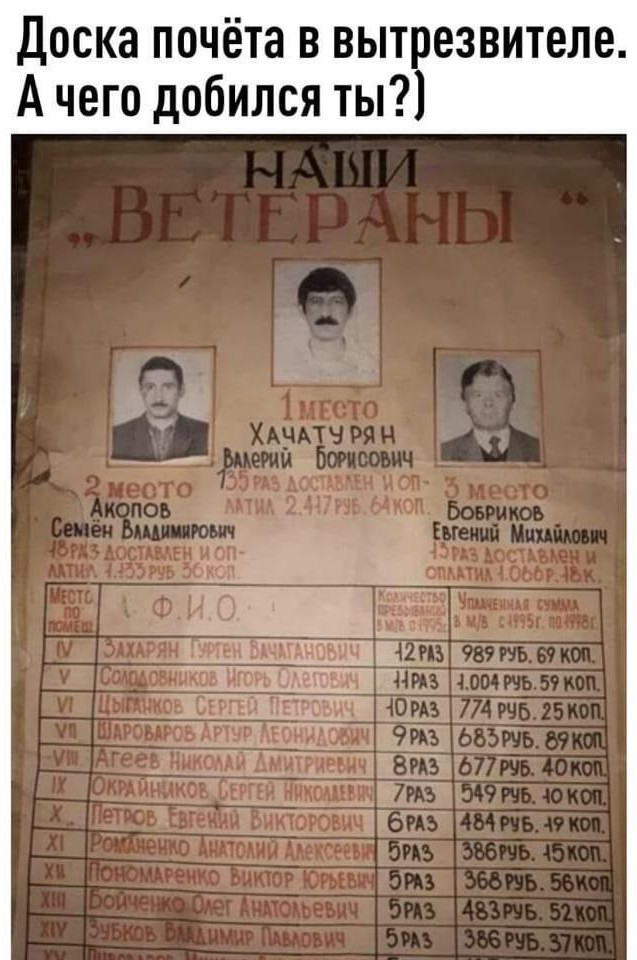 Доска почёта в вытрезвителе.
А чего добился ты?)
НАШИ
„ВЕТЕРАНЫ“
1 МЕСТО
ХАЧАТУРЯН
ВАЛЕРИЙ БОРИСОВИЧ
135 РАЗ ДОСТАВЛЕН И ОП-
ЛАТИЛ 2.417 РУБ. 64 КОП.
2 МЕСТО
АКОПОВ
СЕМЁН ВЛАДИМИРОВИЧ
18 РАЗ ДОСТАВЛЕН И ОП-
ЛАТИЛ 1.133 РУБ 56 КОП.
3 МЕСТО
БОБРИКОВ
ЕВГЕНИЙ МИХАЙЛОВИЧ
13 РАЗ ДОСТАВЛЕН И
ОПЛАТИЛ 1.066 Р. 18 К.
МЕСТО ПО ПОМЕЩ. Ф.И.О. КОЛИЧЕСТВО ПРЕБЫВАНИЙ В М/В С 1995г. УПЛАЧЕННАЯ СУММА В М/В С 1995г. ПО 1998г.
IV ЗАХАРЯН ГУРГЕН ВАЧАГАНОВИЧ 12 РАЗ 989 РУБ. 69 КОП.
V СОЛОДОВНИКОВ ИГОРЬ ОЛЕГОВИЧ 11 РАЗ 1.004 РУБ. 59 КОП.
VI ЦЫГАНКОВ СЕРГЕЙ ПЕТРОВИЧ 10 РАЗ 774 РУБ. 25 КОП.
VII ШАРОВАРОВ АРТУР ЛЕОНИДОВИЧ 9 РАЗ 685 РУБ. 89 КОП.
VIII АГЕЕВ НИКОЛАЙ ДМИТРИЕВИЧ 8 РАЗ 677 РУБ. 40 КОП.
IX ОКРАЙНИКОВ СЕРГЕЙ НИКОЛАЕВИЧ 7 РАЗ 549 РУБ. 10 КОП.
X ПЕТРОВ ЕВГЕНИЙ ВИКТОРОВИЧ 6 РАЗ 484 РУБ. 19 КОП.
XI РОМАНЕНКО АНАТОЛИЙ АЛЕКСЕЕВИЧ 5 РАЗ 386 РУБ. 15 КОП.
XII ПОНОМАРЕНКО ВИКТОР ЮРЬЕВИЧ 5 РАЗ 368 РУБ. 56 КОП
XIII БОЙЧЕНКО ОЛЕГ АНАТОЛЬЕВИЧ 5 РАЗ 483 РУБ. 52 КОП.
XIV ЗУБКОВ ВЛАДИМИР ПАВЛОВИЧ 5 РАЗ 386 РУБ. 37 КОП.